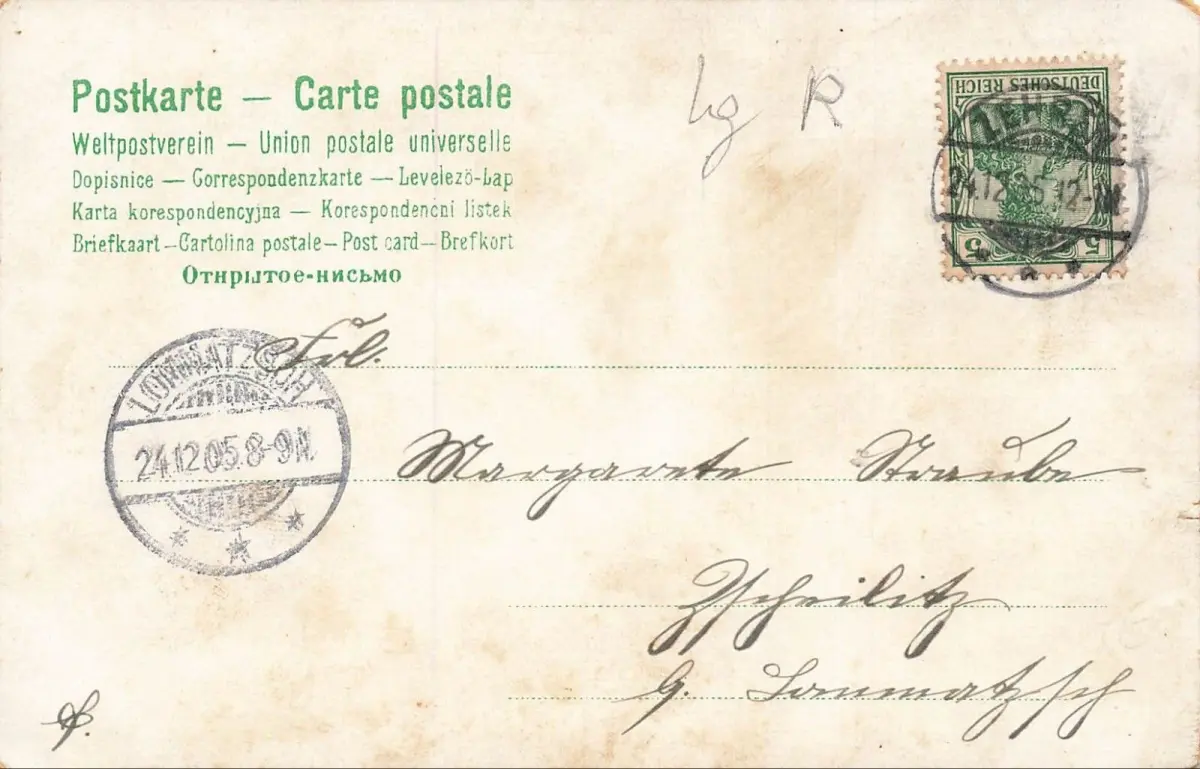 Postkarte — Carte postale
Weltpostverein — Union postale universelle
Dopisnice — Correspondenzkarte — Levelezö-Lap
Karta korespondencyjna — Korespondencni listek
Briefkaart — Cartolina postale — Post card — Brefkort
Открытое-письмо
DEUTSCHES REICH
5 5
LOMMATZSCH
24.12.05.8-9N.
Frl.
Margarete Straube
Zscheilitz
b. Lommatzsch